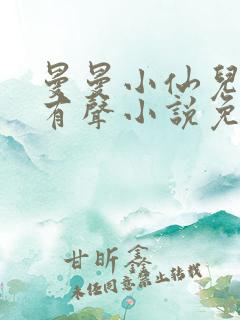 曼曼小仙兒
有聲小説免
甘昕鑫
未经同意禁止转载